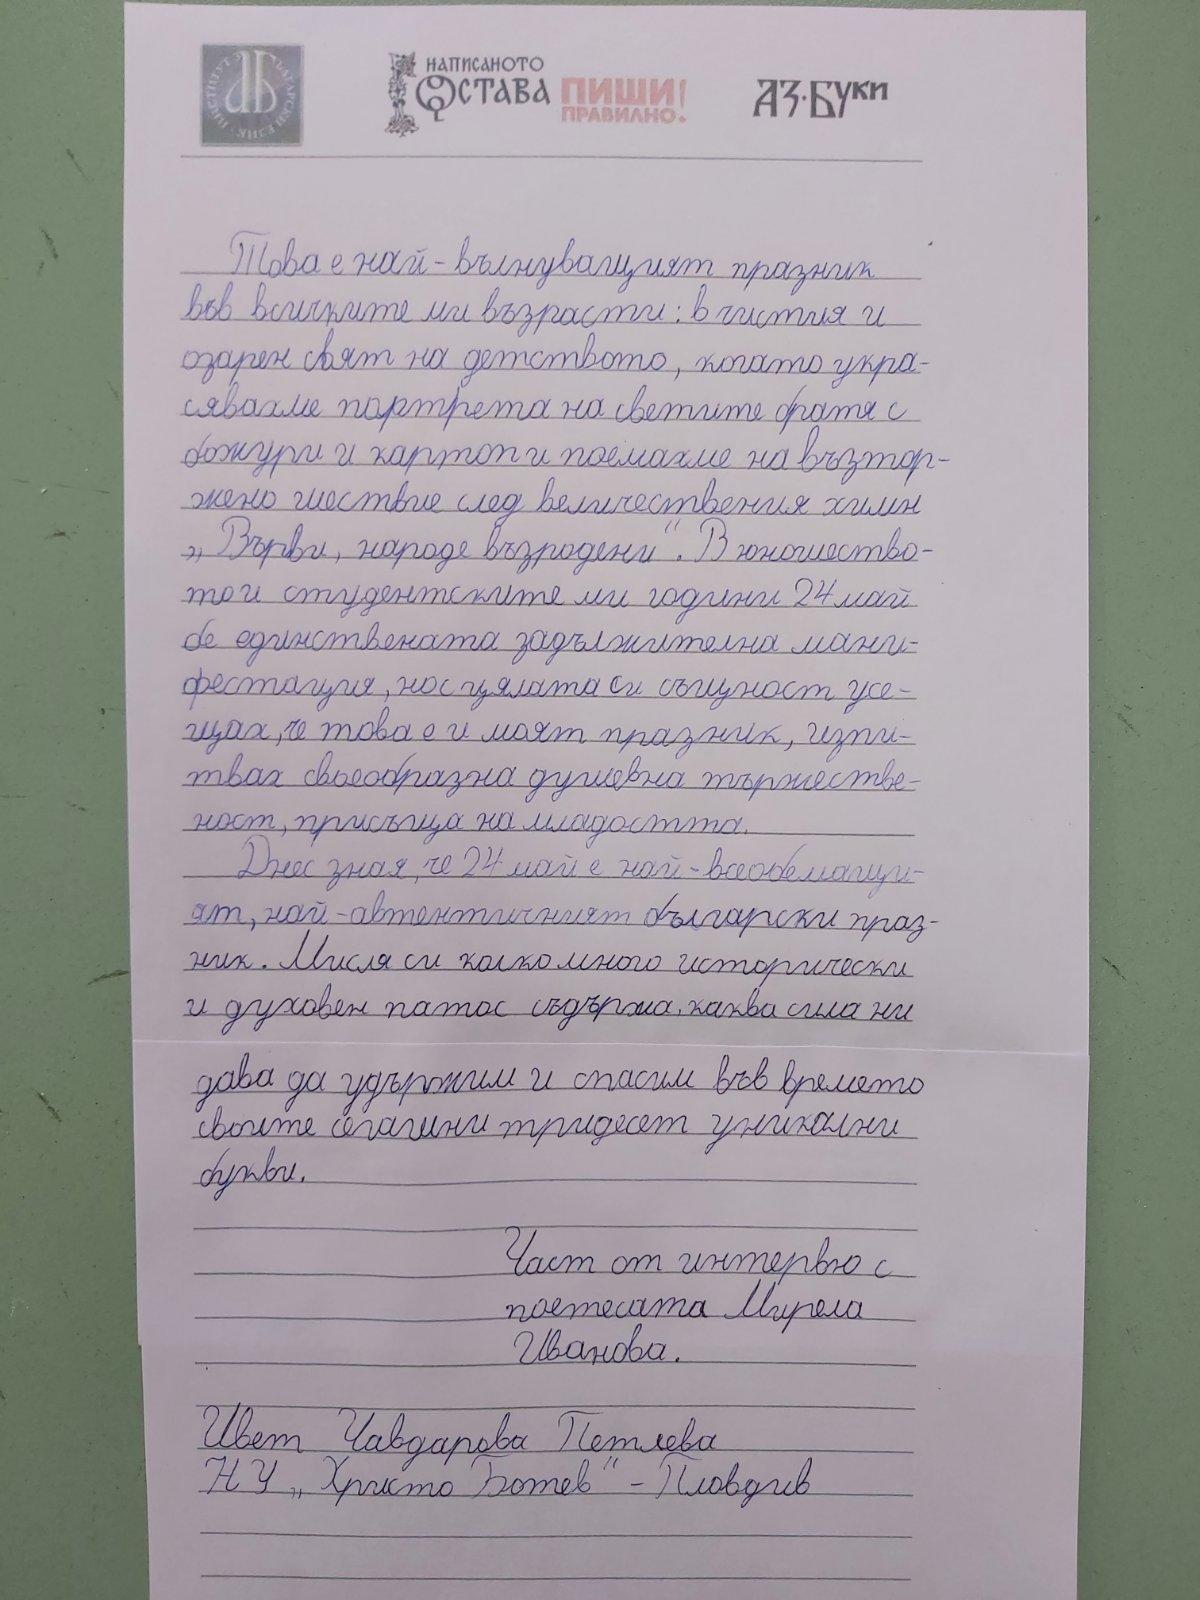 ИНСТИТУТ ЗА БЪЛГАРСКИ ЕЗИК
НАПИСАНОТО
ОСТАВА
ПИШИ
ПРАВИЛНО!
АЗ·БУКИ
Това е най-вълнуващият празник
във всичките ми възрасти: в чистия и
озарен свят на детството, когато укра-
сявахме портрета на светите братя с
божури и картоп и поемахме на възтор-
жено шествие след величествения химн
„Върви, народе възродени". В юношество-
то и студентските ми години 24 май
бе единствената задължителна мани-
фестация, но с цялата си същност усе-
щах, че това е и моят празник, изпи-
твах своеобразна душевна тържестве-
ност, присъща на младостта.
Днес зная, че 24 май е най-всеобемащи-
ят, най-автентичният български праз-
ник. Мисля си колко много исторически
и духовен патос съдържа, каква сила ни
дава да удържим и спасим във времето
своите сегашни тридесет уникални
букви.
Част от интервю с
поетесата Мирела
Иванова.
Цвет Чавдарова Петлева
НУ „Христо Ботев" - Пловдив